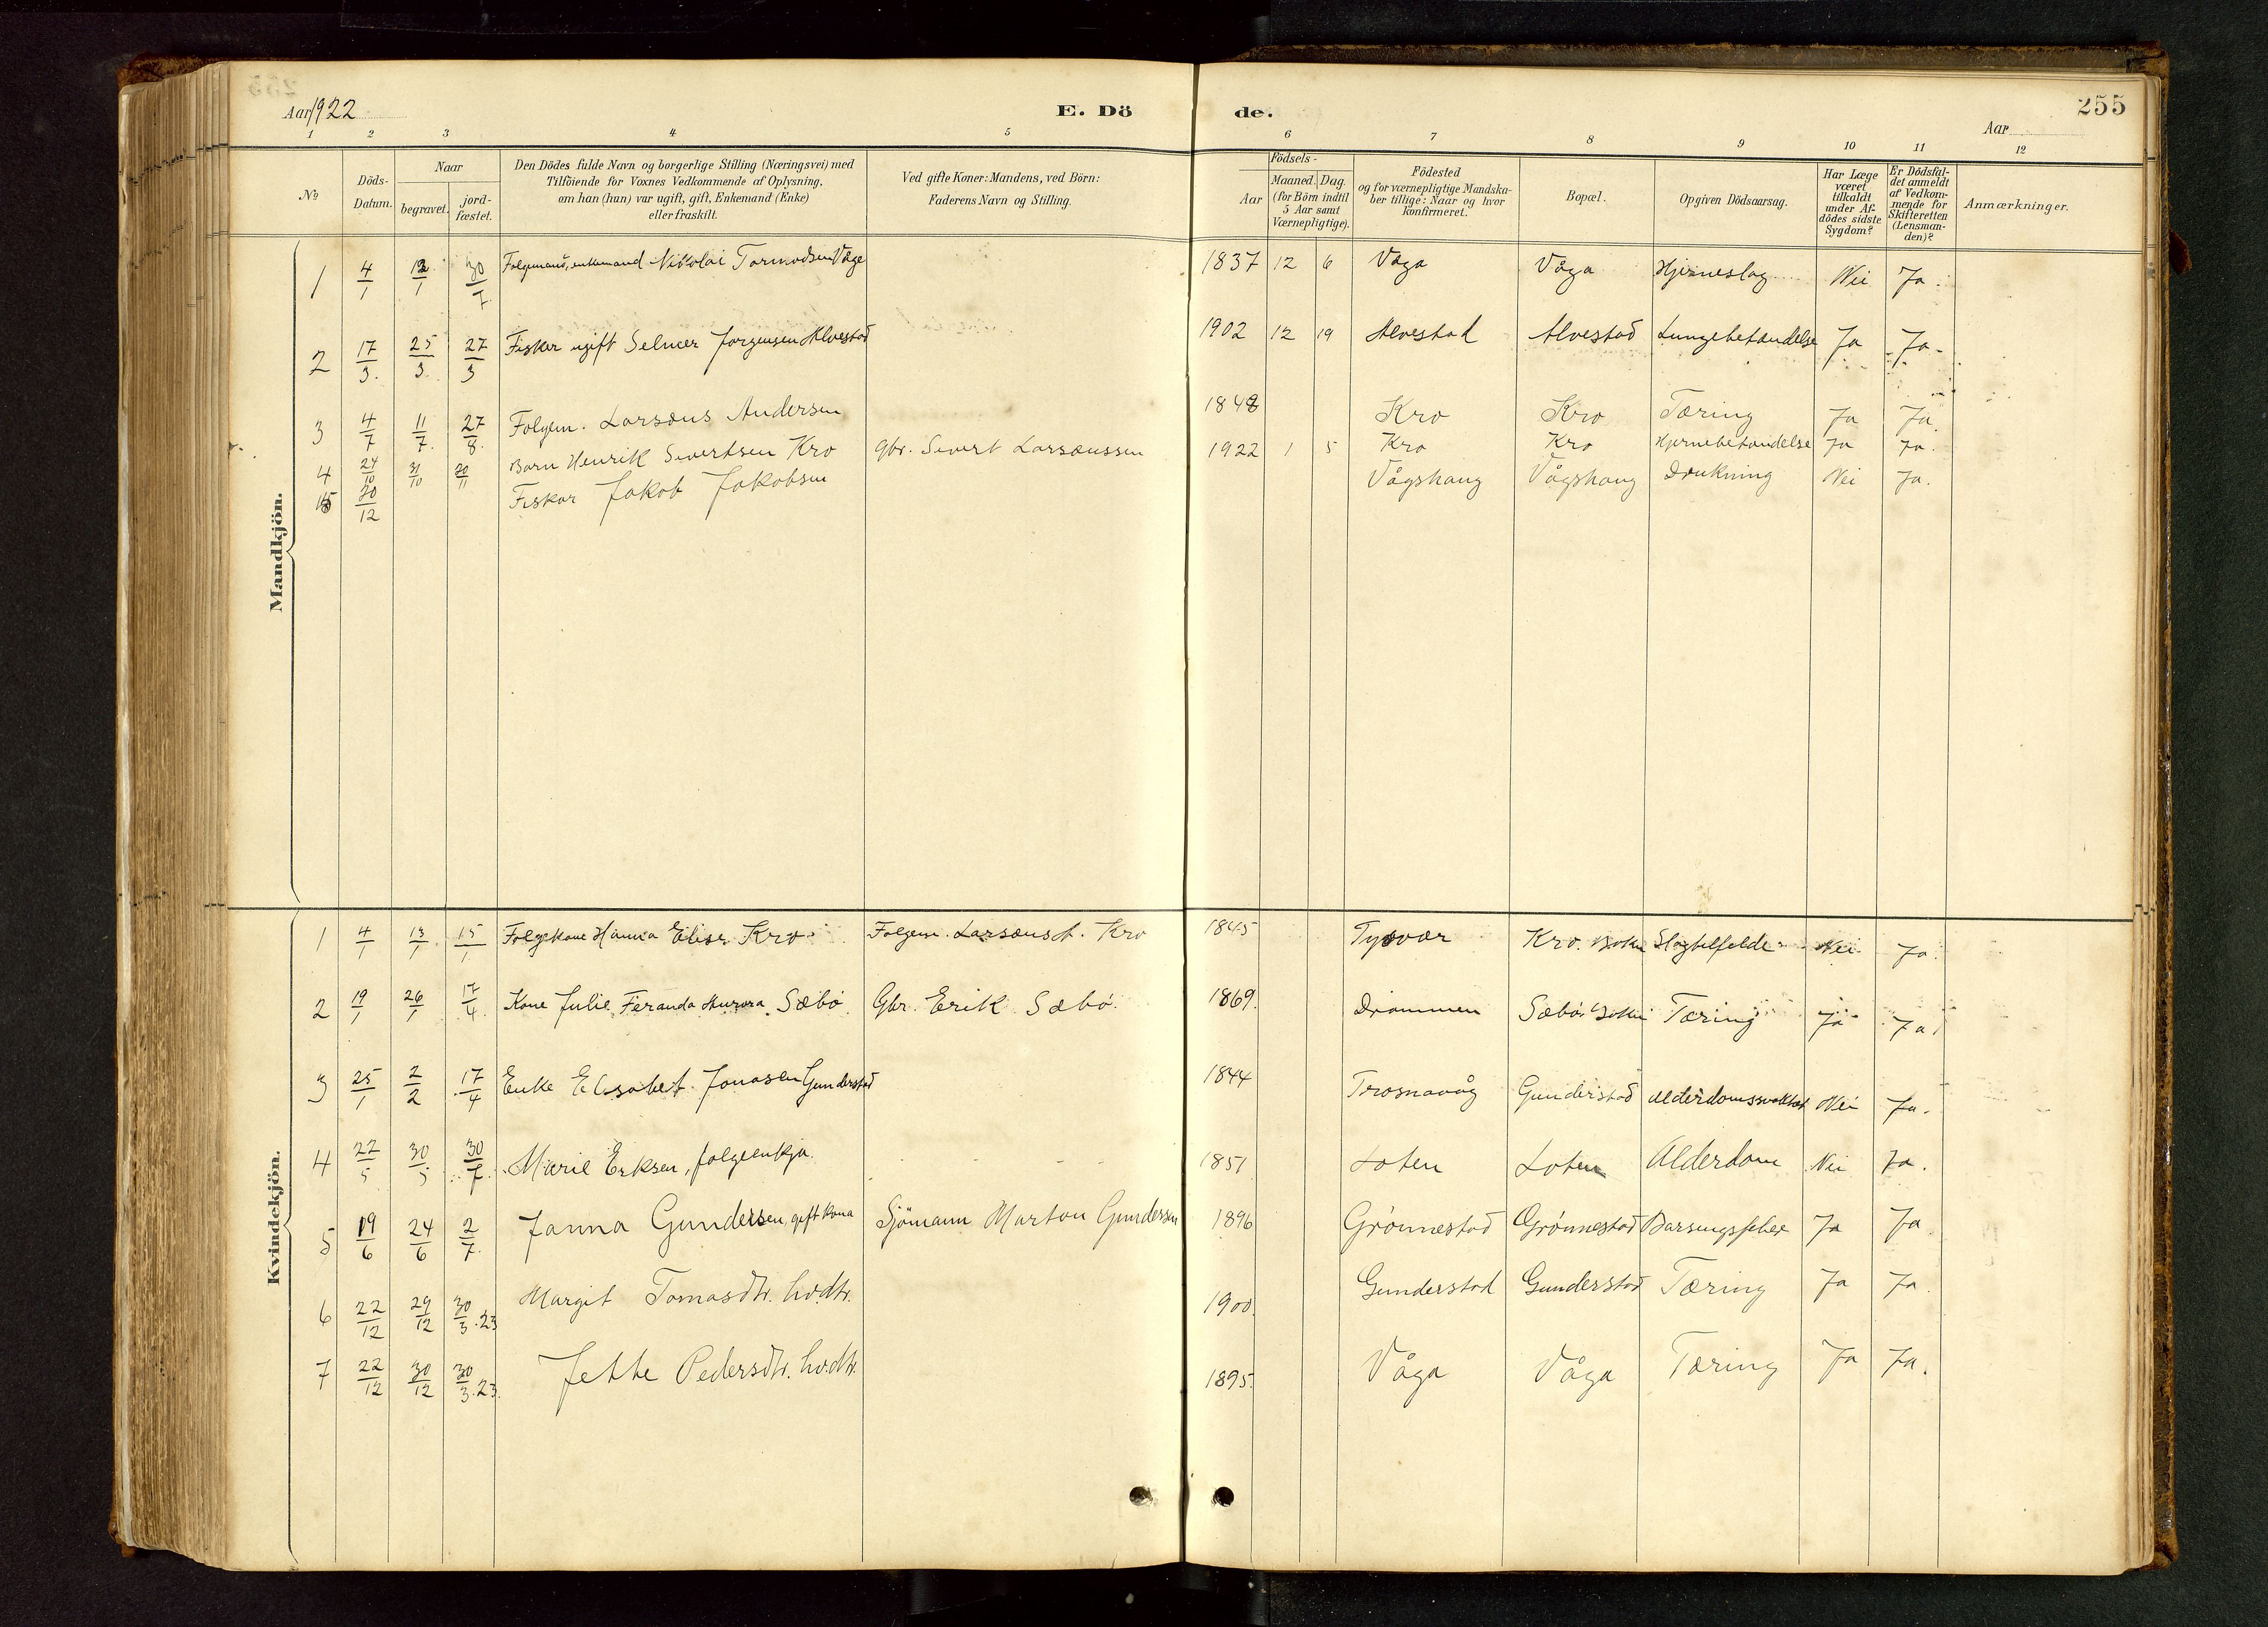 Aar 1922 E. Dö de. 255
Aar
1 2 3 4 5 6 7 8 9 10 11 12
No
Döds-Datum.
Naar
begravet. jordfæstet.
Den Dödes fulde Navn og borgerlige Stilling (Næringsvei) med
Tilföiende for Voxnes Vedkommende af Oplysning,
om han (hun) var ugift, gift, Enkemand (Enke)
eller fraskilt.
Ved gifte Koner: Mandens, ved Börn:
Faderens Navn og Stilling.
Födsels-
Aar Maaned. Dag.
(for Börn indtil
5 Aar samt
Værnepligtige).
Födested
og for værnepligtige Mandska-
ber tillige: Naar og hvor
konfirmeret.
Bopæl.
Opgiven Dödsaarsag.
Har Læge
været
tilkaldt
under Af-
dödes sidste
Sygdom?
Er Dödsfal-
det anmeldt
af Vedkom-
mende for
Skifteretten
(Lensman-
den)?
Anmærkninger.
Mandkjön.
1 4/1 12/1 30/7 Folgemand, enkemand Nikolai Tormodsen Våge 1837 12 6 Våga Våga Hjerneslag Nei Ja.
2 17/3. 25/3. 27/3 Fisker ugift Selmer Jorgensen Alvestad 1902 12 19 Alvestad Alvestad Lungebetændelse Ja Ja.
3 4/7 11/7. 27/8. Folgem. Larsæus Andersen 1848 Kro Kro Tæring Ja Ja.
4 24/10 31/10 20/11 Barn Henrik Sivertsen Kro Gbr. Sivert Larsæussen 1922 1 5 Kro Kro Hjernebetændelse Ja Ja.
5 20/12 Fisker Jakob Jakobsen Vågshaug Vågshaug Drukning Nei Ja.
Kvindekjön.
1 4/1 13/1 15/1 Folgekone Hanna Elise Kro Folgem. Larsæus A. Kro 1845 Tysvær Kro. Bokn Slagtilfelde Nei Ja.
2 19/1 26/1 17/4. Kone Julie Feranda Aurora Sæbö. Gbr. Erik Sæbö. 1869. Drammen Sæbö Bokn Tæring Ja Ja.
3 25/1 2/2 17/4 Enke Elisabet Jonasen Gunderstad 1844 Trosnavåg Gunderstad Alderdomssvakhet Nei Ja.
4 22/5 30/5 30/7. Marie Eriksen, folgeenkja. 1851 Loten Loten Alderdom Nei Ja.
5 19/6 24/6 2/7. Janna Gundersen, gift kona Sjömann Marton Gundersen 1896 Grönnestad Grönnestad Barsengsfeber Ja Ja
6 22/12 29/12 30/3.23 Margit Tomasdtr. hvdtr. 1900. Gunderstad Gunderstad Tæring Ja Ja
7 22/12 30/12 30/3.23. Jette Pedersdtr. hvdtr. 1895. Våga Våga Tæring Ja Ja.